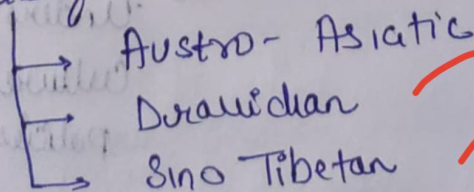 Austro - Asiatic
Dravidian
Sino Tibetan